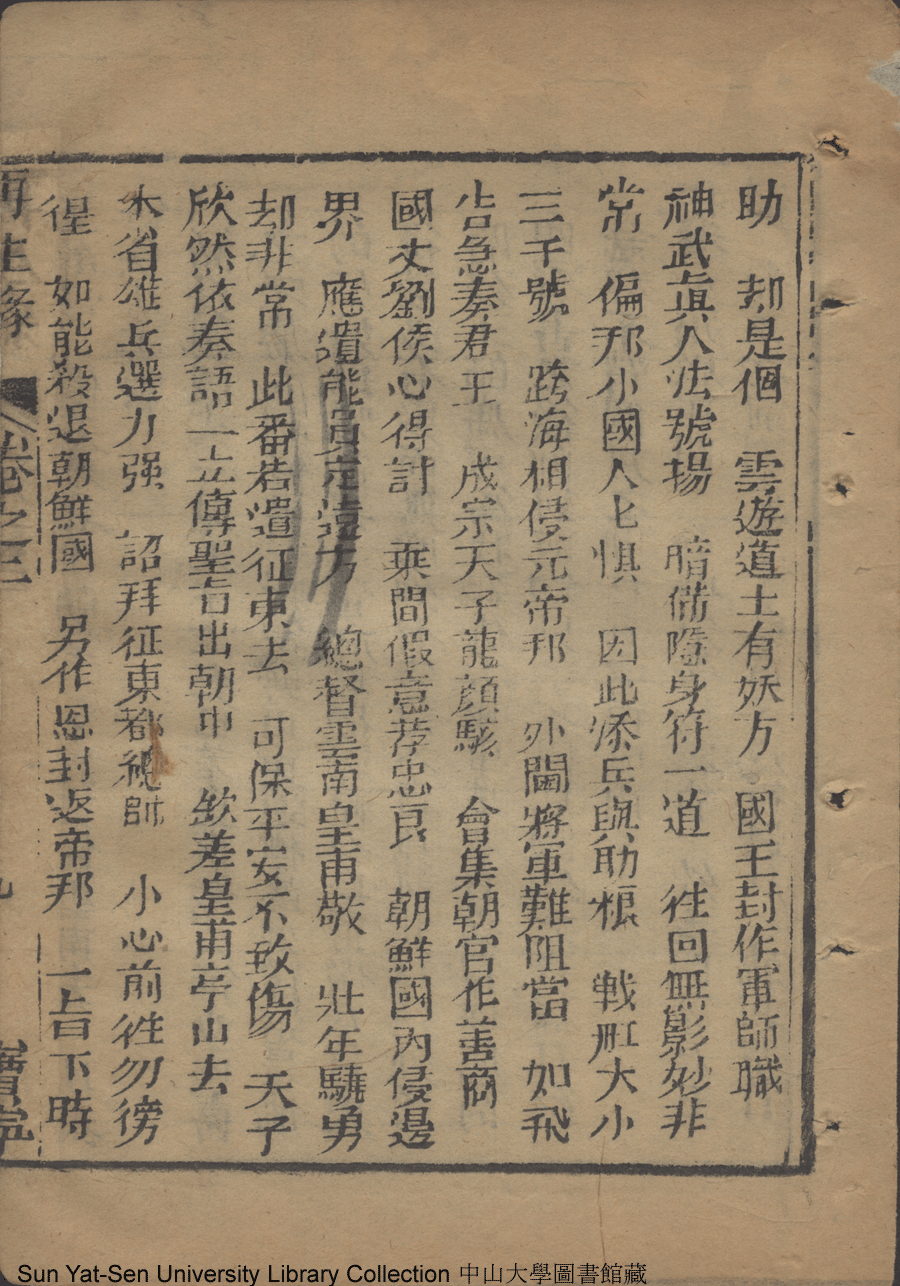 助　却是個　雲遊道士有妖方　國王封作軍師職
神武真人法號揚　暗備隱身符一道　徃回無影妙非
常　偏邦小國人匕惧　因此添兵與助粮　戦舡大小
三千號　跨海相侵元帝邦　外閫將軍難阻當　如飛
告急奏君王　成宗天子龍顔駭　會集朝官作善商
國丈劉侯心得計　乘間假意荐忠良　朝鮮國内侵邊
界　應遣能員定遠方　總督雲南皇甫敬　壯年驍勇
却非常　此番若遣征東去　可保平安不致傷　天子
欣然依奏語　立傳聖旨出朝中　欽差皇甫亭山去
本省雄兵選力强　詔拜征東都總帥　小心前徃勿徬
徨　如能殺退朝鮮國　另作恩封返帝邦　一旨下時
再生緣　卷之三　九　寶寧
Sun Yat-Sen University Library Collection 中山大學圖書館藏